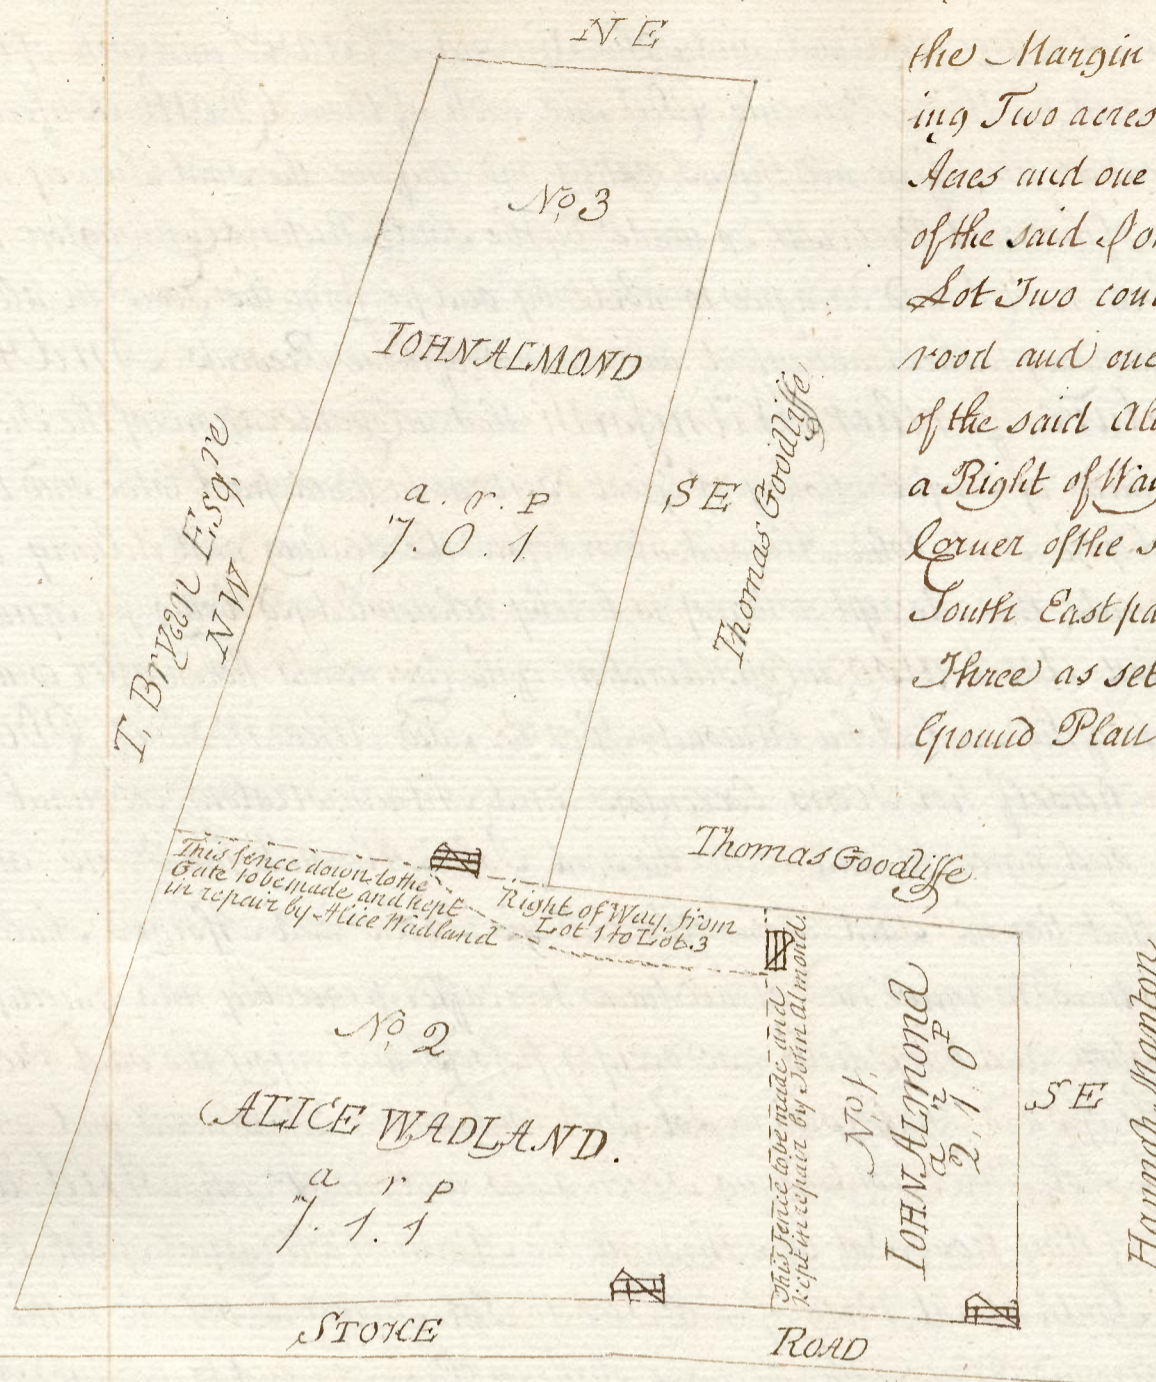 N E
No 3
IOHN ALMOND
a . r . P
7 . 0 . 1
S E
Thomas Goodliffe
T. Bryan Esqre
NW
Thomas Goodliffe
This fence down to the
Gate to be made and kept
in repair by Alice Wadland
Right of Way from
Lot 1 to Lot. 3
No 2
ALICE WADLAND.
a r P
7 . 1 . 1
This fence to be made and
kept in repair by John Almond.
No 1.
IOHN ALMOND
a r P
2 . 1 . 0
S E
Hannah Manton
STOKE ROAD
the Margin
ing Two acres
Acres and one
of the said
Lot Two
rood and one
of the said
a Right of Way
Corner of the
South East
Three as set
Ground Plan